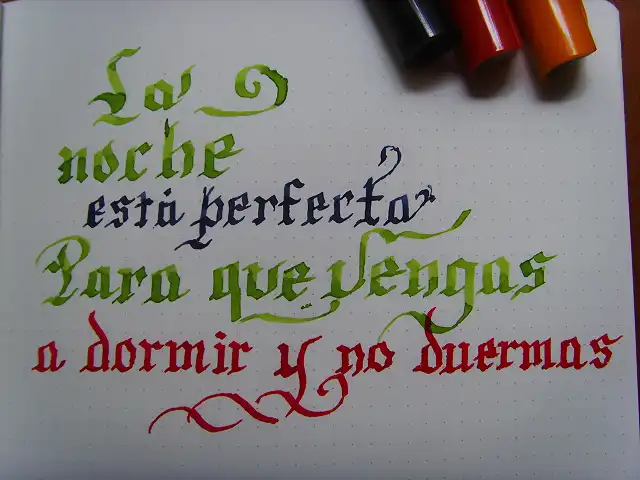 La
noche
está perfecta
Para que vengas
a dormir y no duermas